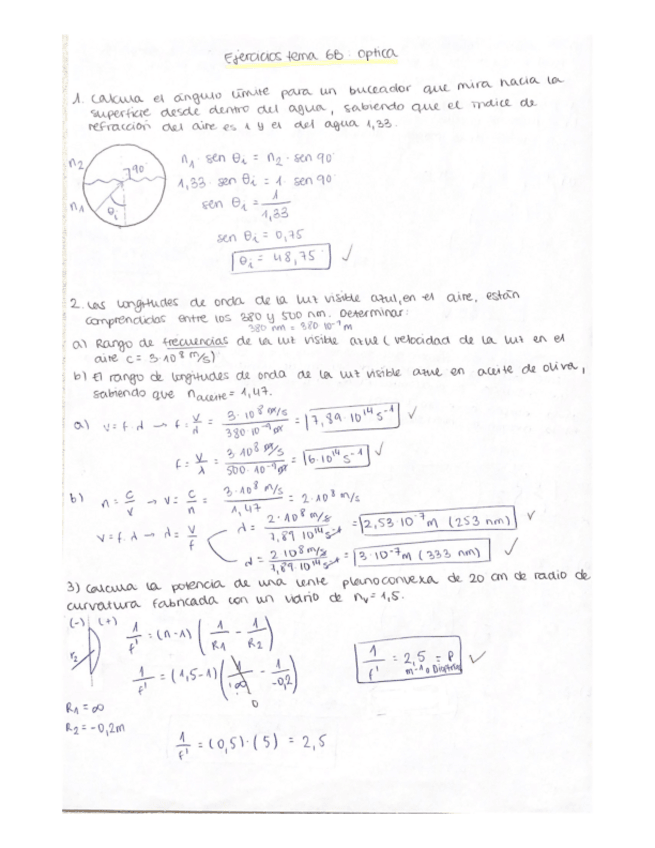 Ejercicios tema 6B: Optica
1. Calcula el ángulo límite para un buceador que mira hacia la
superficie desde dentro del agua, sabiendo que el índice de
refracción del aire es 1 y el del agua 1,33.
n2
90°
n1
θi
n1 · sen θi = n2 · sen 90°
1,33 · sen θi = 1 · sen 90
sen θi = 1/1,33
sen θi = 0,75
θi = 48,75° ✓
2. Las longitudes de onda de la luz visible azul, en el aire, están
comprendidas entre los 380 y 500 nm. Determinar:
380 nm = 380·10⁻⁹ m
a) Rango de frecuencias de la luz visible azul (velocidad de la luz en el
aire c = 3·10⁸ m/s)
b) El rango de longitudes de onda de la luz visible azul en aceite de oliva,
sabiendo que naceite = 1,47.
a) v = f·λ → f = v/λ = 3·10⁸ m/s / 380·10⁻⁹ m = 7,89·10¹⁴ s⁻¹ ✓
f = v/λ = 3·10⁸ m/s / 500·10⁻⁹ m = 6·10¹⁴ s⁻¹ ✓
b) n = c/v → v = c/n = 3·10⁸ m/s / 1,47 = 2·10⁸ m/s
v = f·λ → λ = v/f
λ = 2·10⁸ m/s / 7,89·10¹⁴ s⁻¹ = 2,53·10⁻⁷ m (253 nm) ✓
λ = 2·10⁸ m/s / 7,89·10¹⁴ s⁻¹ = 3·10⁻⁷ m (333 nm) ✓
3) Calcula la potencia de una lente planoconvexa de 20 cm de radio de
curvatura fabricada con un vidrio de nv = 1,5.
(-) (+)
r2
R1 = ∞
R2 = -0,2m
1/f' = (n-1) (1/R1 - 1/R2)
1/f' = (1,5-1) (1/∞ - 1/-0,2)
0
1/f' = (0,5)·(5) = 2,5
1/f' = 2,5 = P ✓
m⁻¹ o Dioptrías